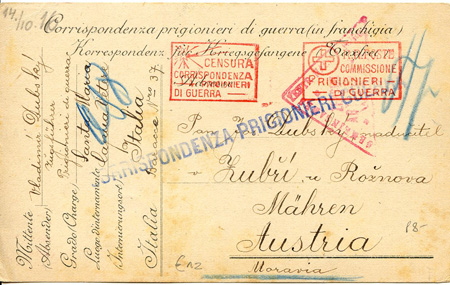 14/10. 16
Corrispondenza prigionieri di guerra (in franchigia)
Korrespondenz für Kriegsgefangene Taxfrei
CENSURA
CORRISPONDENZA
PRIGIONIERI
DI GUERRA
COMMISSIONE
PRIGIONIERI
DI GUERRA
CORRISPONDENZA PRIGIONIERI
Pan
Dubský
Zubří u Rožnova
Mähren
Austria
Moravia
18-
Mittente Vladimír Dubský
(Absender) Zugsführer
Grado (Charge) prigioniero di guerra
Luogo d'internamento Santa Maria
(Internierungsort)
Italia Baracce No 37.
Italia